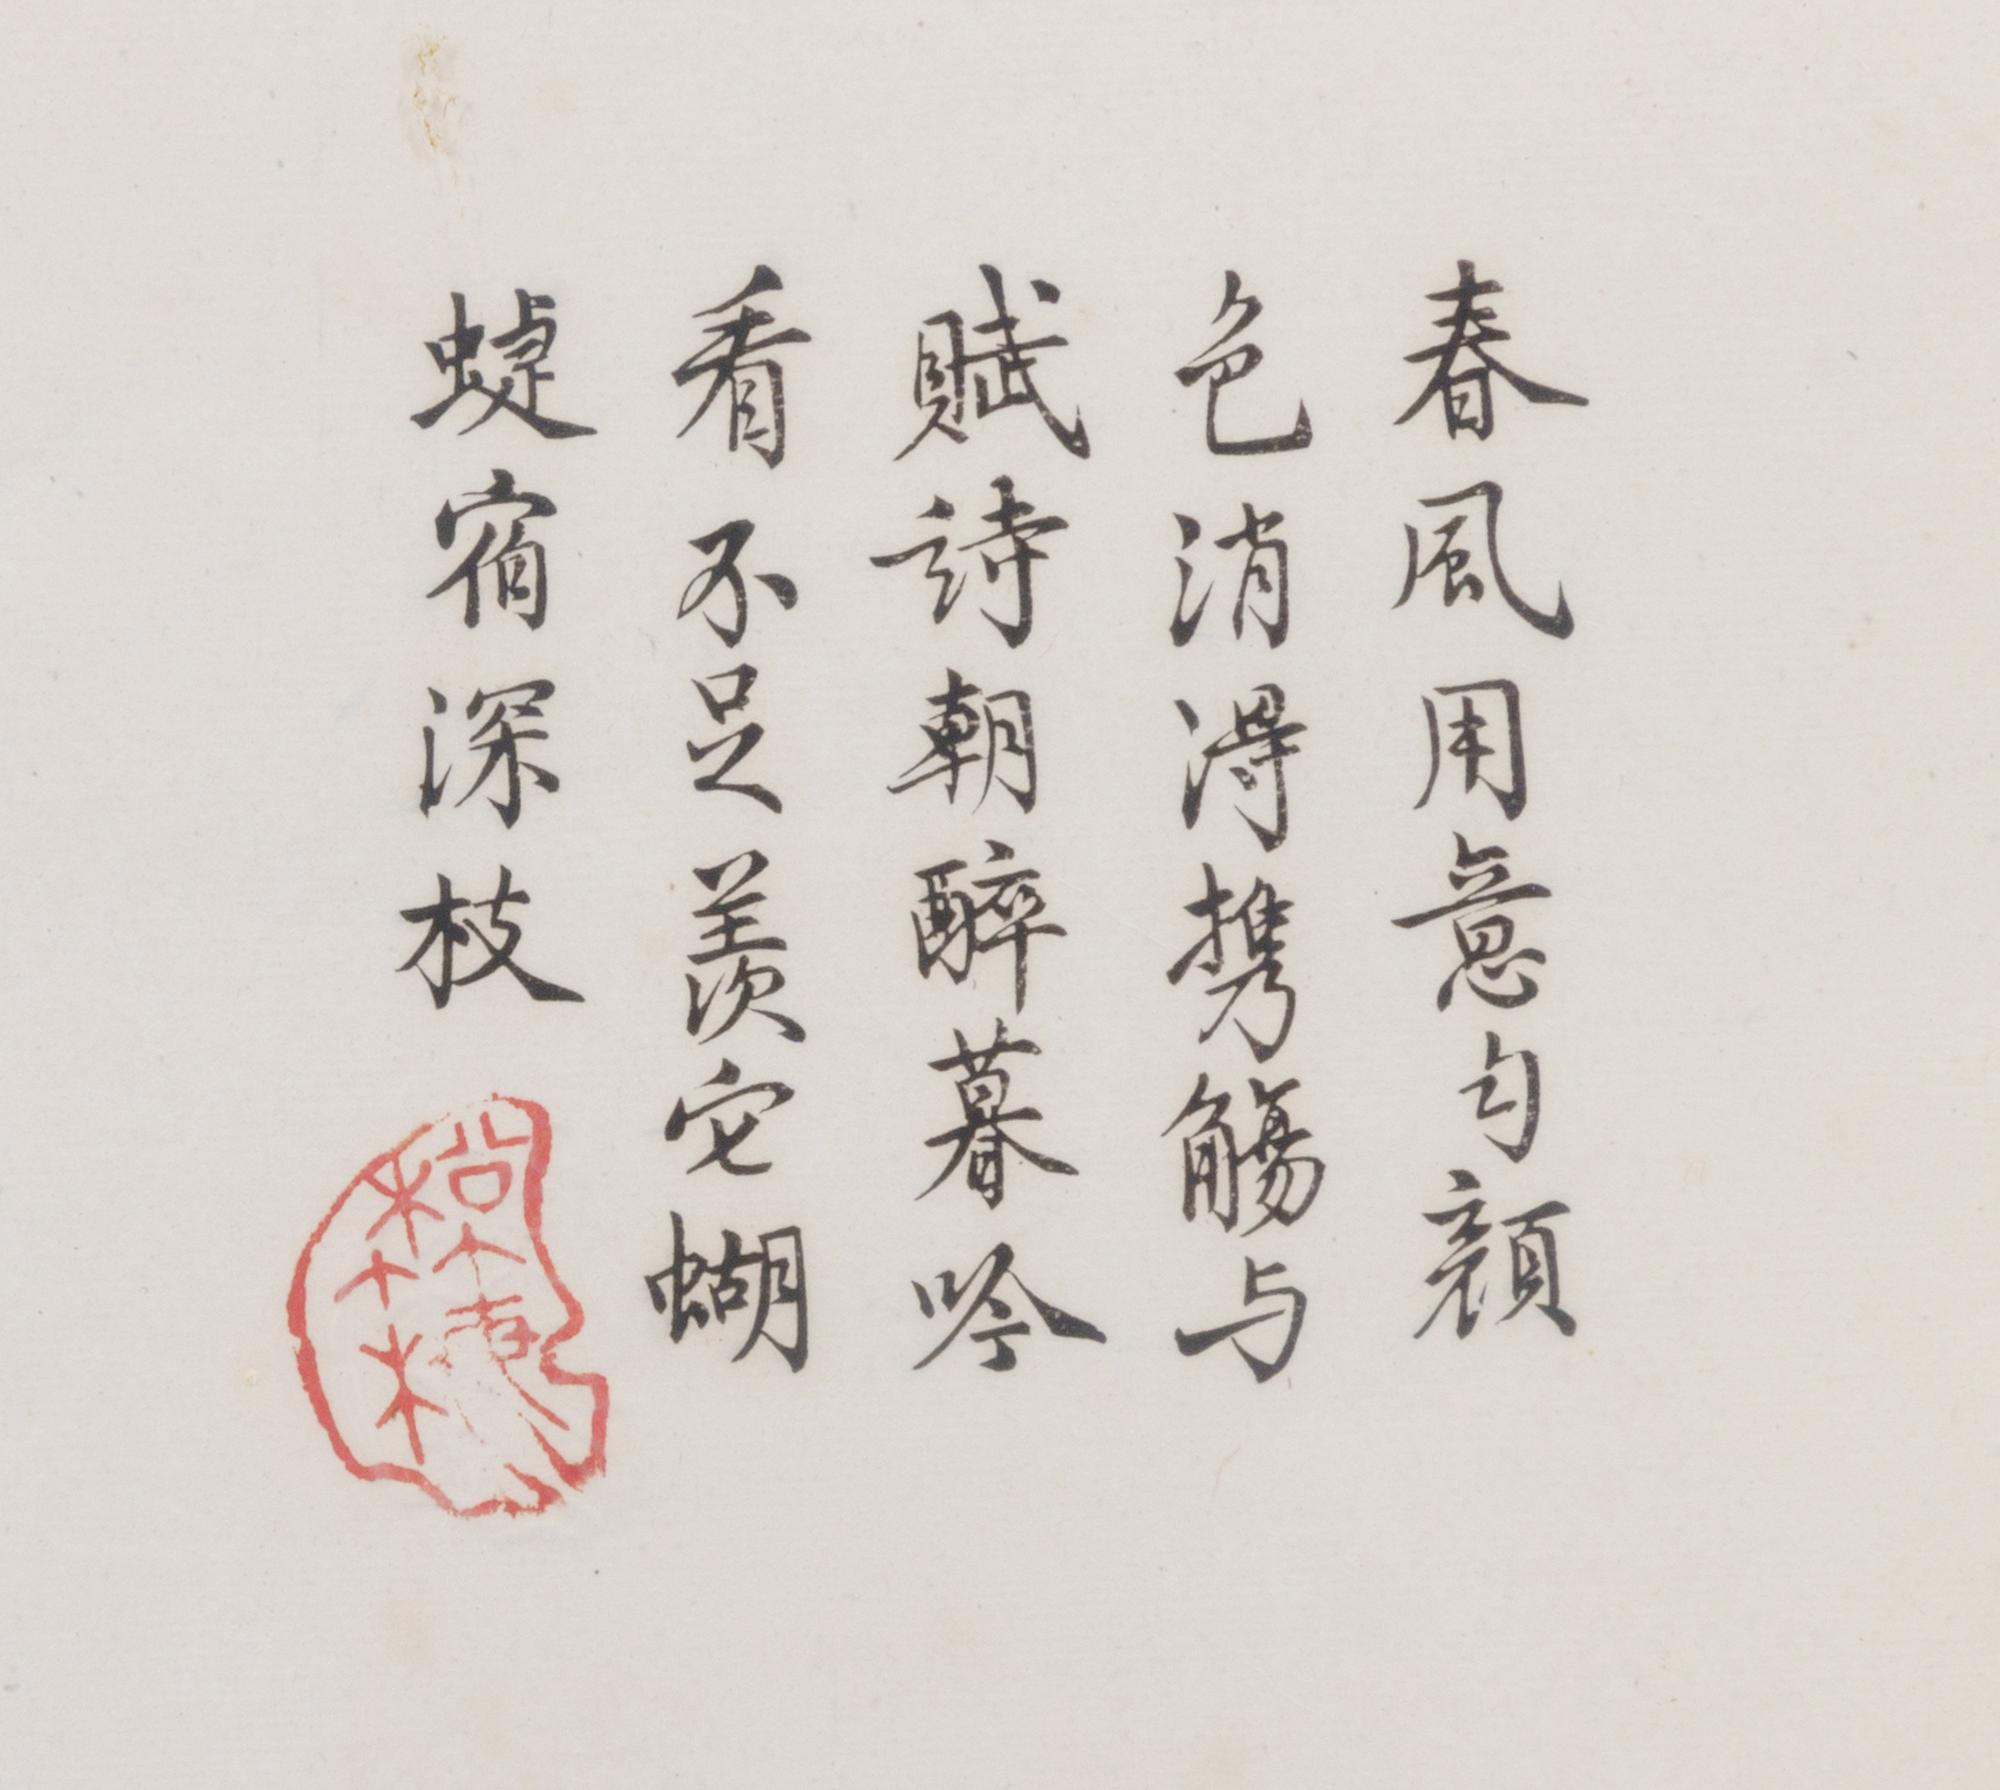 春風用意勻顔
色消得携觴与
賦詩朝醉暮吟
看不足羡它蝴
蜨宿深枝